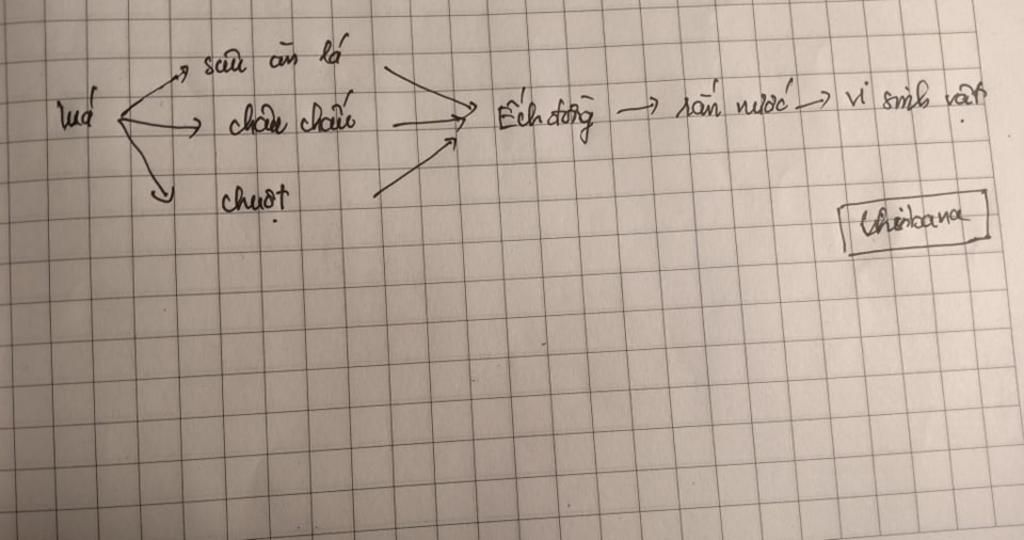 sâu ăn lá
lúa châu chấu Ếch đồng → rắn nước → vi sinh vật
chuột